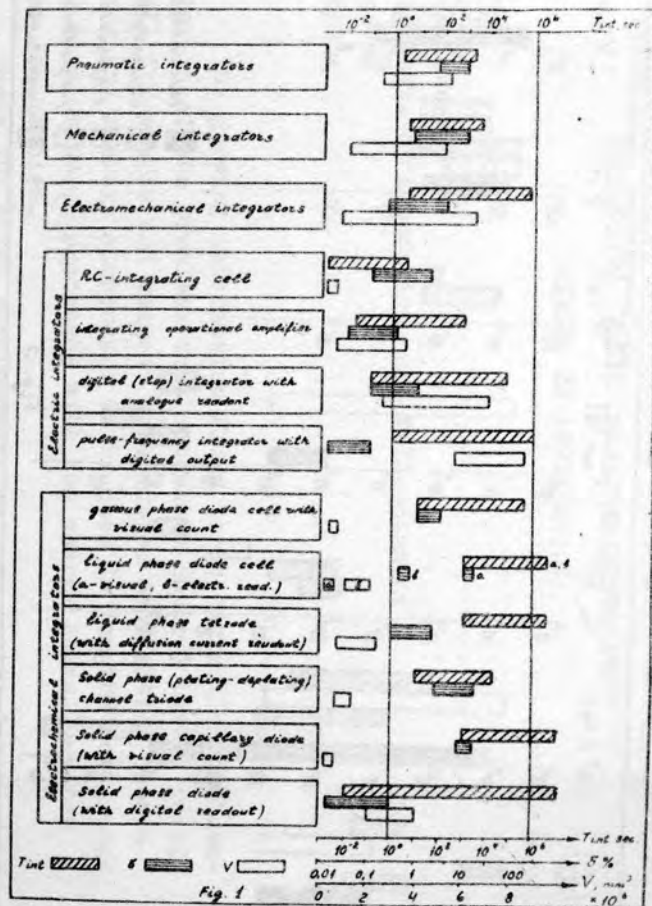 10⁻² 10⁰ 10² 10⁴ 10⁶ Tint, sec
Pneumatic integrators
Mechanical integrators
Electromechanical integrators
Electric integrators
RC-integrating cell
integrating operational amplifier
digital (step) integrator with
analogue readout
pulse-frequency integrator with
digital output
Electrochemical integrators
gaseous phase diode cell with
visual count
liquid phase diode cell
(a-visual, b-electr. read.)
b a a,b
liquid phase tetrode
(with diffusion current readout)
Solid phase (plating-deplating)
channel triode
Solid phase capillary diode
(with visual count)
Solid phase diode
(with digital readout)
Tint sec
10⁻² 10⁰ 10² 10⁴ 10⁶
Tint δ V
δ %
0.01 0,1 1 10 100
V, mm³
0 2 4 6 8 × 10⁶
Fig. 1